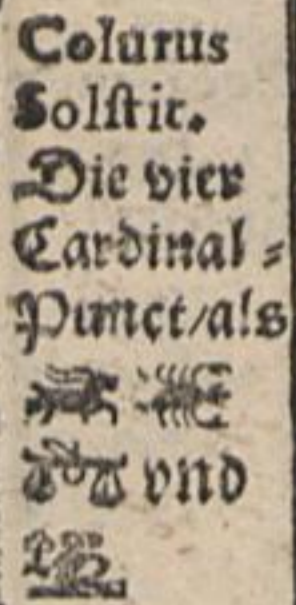 Colurus
Solſtit.
Die vier
Cardinal⸗
Punct/als
♈ ♋
♎ vnd
♑